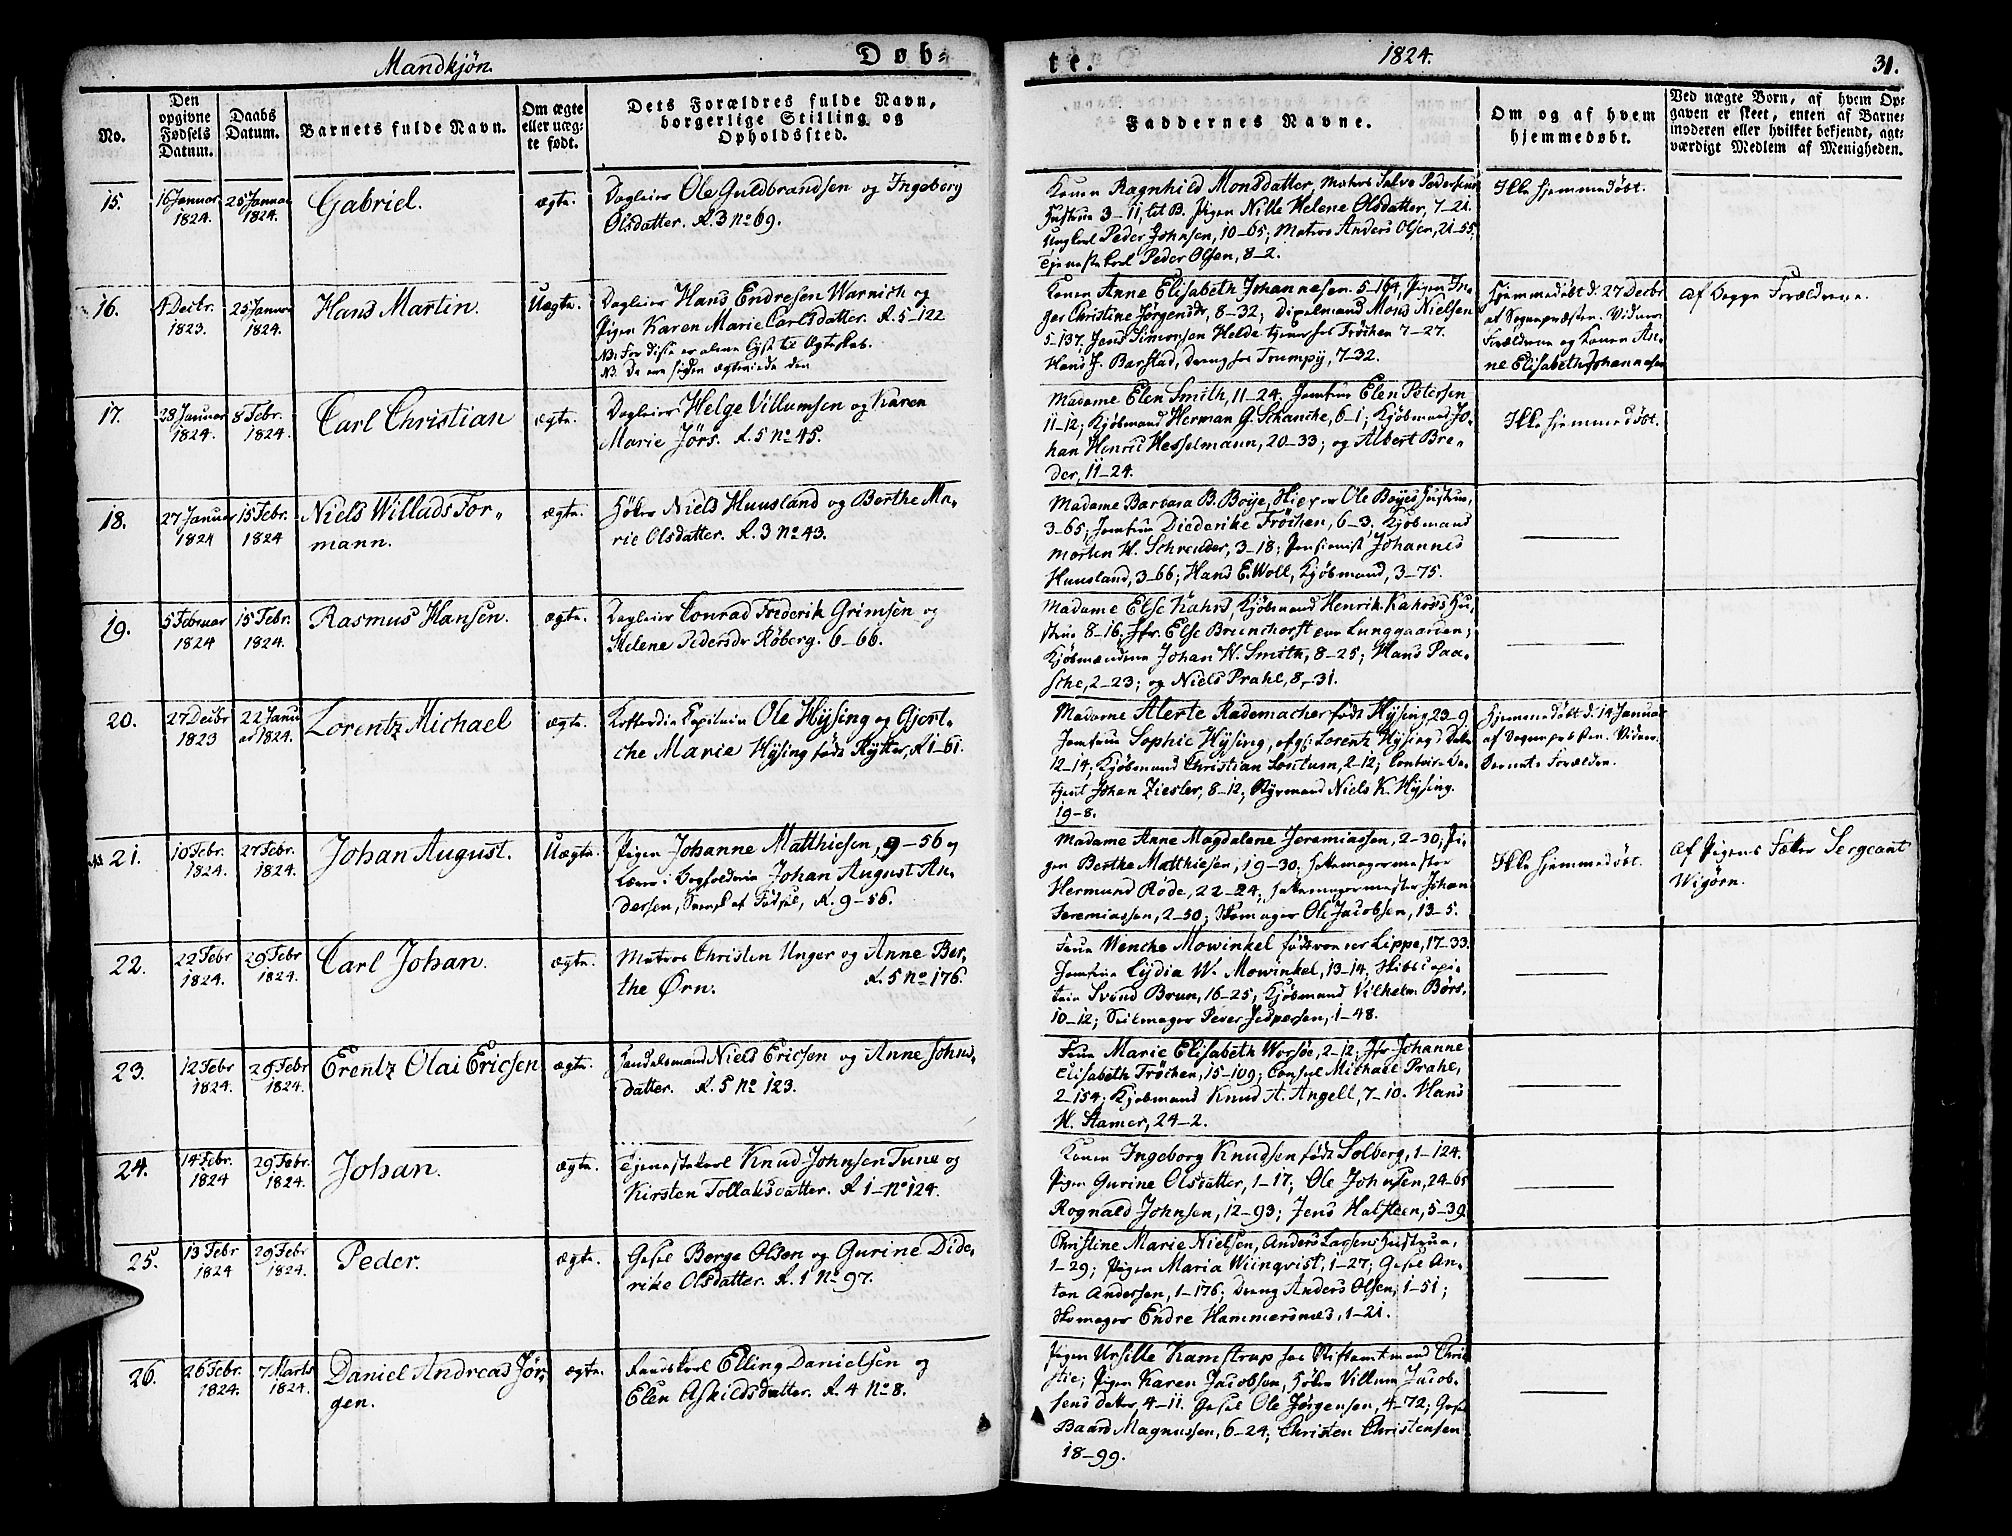 Mandkjøn.
Døb-
te.
1824.
31.
No.
Den opgivne Fødsels Datum.
Daabs Datum.
Barnets fulde Navn.
Om ægte eller uæg- te født.
Dets Forældres fulde Navn, borgerlige Stilling og Opholdssted.
Faddernes Navne.
Om og af hvem hjemmedøbt.
Ved uægte Born, af hvem Op- gaven er skeet, enten af Barne- moderen eller hvilket bekjendt, agt- værdigt Medlem af Menigheden.
15.
16 Januar 1824.
25 Januar 1824.
Gabriel.
ægte.
Dagleier Ole Guldbrandsen og Ingeborg
Olsdatter. R. 3 No 69.
Konen Ragnhild Monsdatter, Matros Salve Pedersens
Hustrue 3-11, lit B. Pigen Nille Helene Olsdatter, 7-21.
Ungkarl Peder Johnsen, 10-65; Matros Anders Olsen, 21-55,
Tjenestekarl Peder Olsen, 8-2.
Ikke hjemmedøbt.
16.
4 Decbr. 1823.
25 Januar 1824.
Hans Martin.
Uægte.
Dagleier Hans Endresen Warnich og
Pigen Karen Marie Carlsdatter. R. 5-122
NB. For disse er alene lyst til Ægteskab.
NB. De ere siden ægteviede den
Konen Anne Elisabeth Johannesen 5-164, Pigen In-
ger Christine Jørgensdr, 8-32; Mons Nielsen
5-137. Jens Simonsen Helde tjener hos Frøchen 7-27.
Hans J. Barstad, Dreng hos Trumpy, 7-32.
Hjemmedøbt d: 27 Decbr
af Sognepræsten. Vidner
Forældrene og Konen An-
ne Elisabeth Johannesen
Af begge Forældrene.
17.
28 Januar 1824.
8 Febr. 1824.
Carl Christian
ægte.
Dagleier Helge Villumsen og Karen
Marie Jørs. R. 5 No 45.
Madame Elen Smith, 11-24. Jomfrue Elen Petersen
11-12; Kjøbmand Herman G. Schancke, 6-1; Kjøbmand Jo-
han Henric Hesselmann, 20-33; og Albert Bre-
der, 11-24.
Ikke hjemmedøbt.
18.
27 Januar 1824
15 Febr. 1824
Niels Willads For-
mann.
ægte.
Høker Niels Huusland og Berthe Ma-
rie Olsdatter. R. 3 No 43.
Madame Barbara B. Boye, Ole Boyes Hustrue,
3-65; Jomfrue Diederike Fröchen, 6-3, Kjøbmand
Morten W. Schreuder, 3-18; Pensionist Johannes
Huusland, 3-66; Hans E. Woll, Kjøbmand, 3-75.
19.
5 Februar 1824
15 Febr. 1824.
Rasmus Hansen.
ægte.
Dagleier Conrad Frederik Grimsen og
Helene Pedersdr Røberg. 6-66.
Madame Else Kahrs, Kjøbmand Henrik Kahrs's Hu-
strue 8-16; Jfr. Else Brunchorst paa Lungegaarden;
Kjøbmændene Johan W. Smith, 8-25; Hans Paa-
sche, 2-23; og Niels Prahl, 8-31.
20.
27 Decbr 1823
22 Janu ar 1824.
Lorentz Michael
ægte.
Kofferdie Capitain Ole Hysing og Gjert-
che Marie Hysing født Rytter, R. 1-61.
Madame Alerte Rademacher født Hysing, 23-9
Jomfrue Sophie Hysing, afg: Lorentz Hysing's Datter
12-14; Kjøbmand Christian Sontum, 2-12;
Johan Ziesler, 8-12; Styrmand Niels K. Hysing.
19-8.
Hjemmedøbt d. 14 Januar
af Sognepresten. Vidner
Barnets Forældre.
21.
10 Febr. 1824.
27 Febr. 1824.
Johan August.
Uægte.
Pigen Johanne Matthiesen, 9-56 og
Johan August An-
dersen, Svensk af Fødsel, R. 9-56.
Madame Anne Magdalene Jeremiassen, 2-30; Pi-
gen Berthe Matthiesen, 19-30;
Hermund Røde, 22-24; Johan
Jeremiassen, 2-50; Skomager Ole Jacobsen, 13-5.
Ikke hjemmedøbt.
Af Pigens Fader Sergeant
Wigørn.
22.
22 Febr 1824.
29 Febr 1824.
Carl Johan.
ægte.
Matros Christen Unger og Anne Ber-
the Ørn. R. 5 No 176.
Frue Wenche Mowinkel født von der Lippe, 17-33.
Jomfrue Lydia W. Mowinkel, 13-14, Skibscapi-
tain Svend Brun, 16-25, Kjøbmand Vilhelm Börs,
10-12; Seilmager Peder Jespersen, 1-48.
23.
12 Febr 1824.
29 Febr 1824.
Erentz Olai Ericsen
ægte.
Handelsmand Niels Ericsen og Anne Johns-
datter. R. 5 No 123.
Frue Marie Elisabeth Worsöe, 2-12; Jfr Johanne
Elisabeth Fröchen, 15-109; Consul Michael Prahl,
2-154; Kjøbmand Knud A. Angell, 7-10. Hans
H. Stamer, 24-2.
24.
14 Febr. 1824
29 Febr. 1824.
Johan.
ægte.
Tjenestekarl Knud Johnsen Tune og
Kirsten Tollaksdatter. R 1-No 124.
Konen Ingeborg Knudsen født Solberg, 1-124.
Pigen Gurine Olsdatter, 1-17; Ole Johnsen, 24-65
Rognald Johnsen, 12-93; Jens Halsteen, 5-39.
25.
13 Febr 1824
29 Febr 1824.
Peder.
ægte.
Gesel Børge Olsen og Gurine Dide-
rike Olsdatter. R. 1 No 97.
Christine Marie Nielsen, Anders Larsens Hustrue,
1-29; Pigen Maria Wiinqvist, 1-27; Gesel An-
ton Andersen, 1-176; Dreng Anders Olsen, 1-51;
Skomager Endre Hammersnæs, 1-21.
26.
26 Febr. 1824.
7 Marts 1824.
Daniel Andreas Jør-
gen.
ægte.
Elling Danielsen og
Elen Askildsdatter. R. 4 No 8.
Pigen Ursille Kamstrup hos Stiftamtmand Chri-
stie; Pigen Karen Jacobsen, Høker Villum Jacob-
sens datter, 4-11. Gesel Ole Jørgensen, 4-72; Gesel
Baard Magnussen, 6-24; Christen Christensen
18-99.